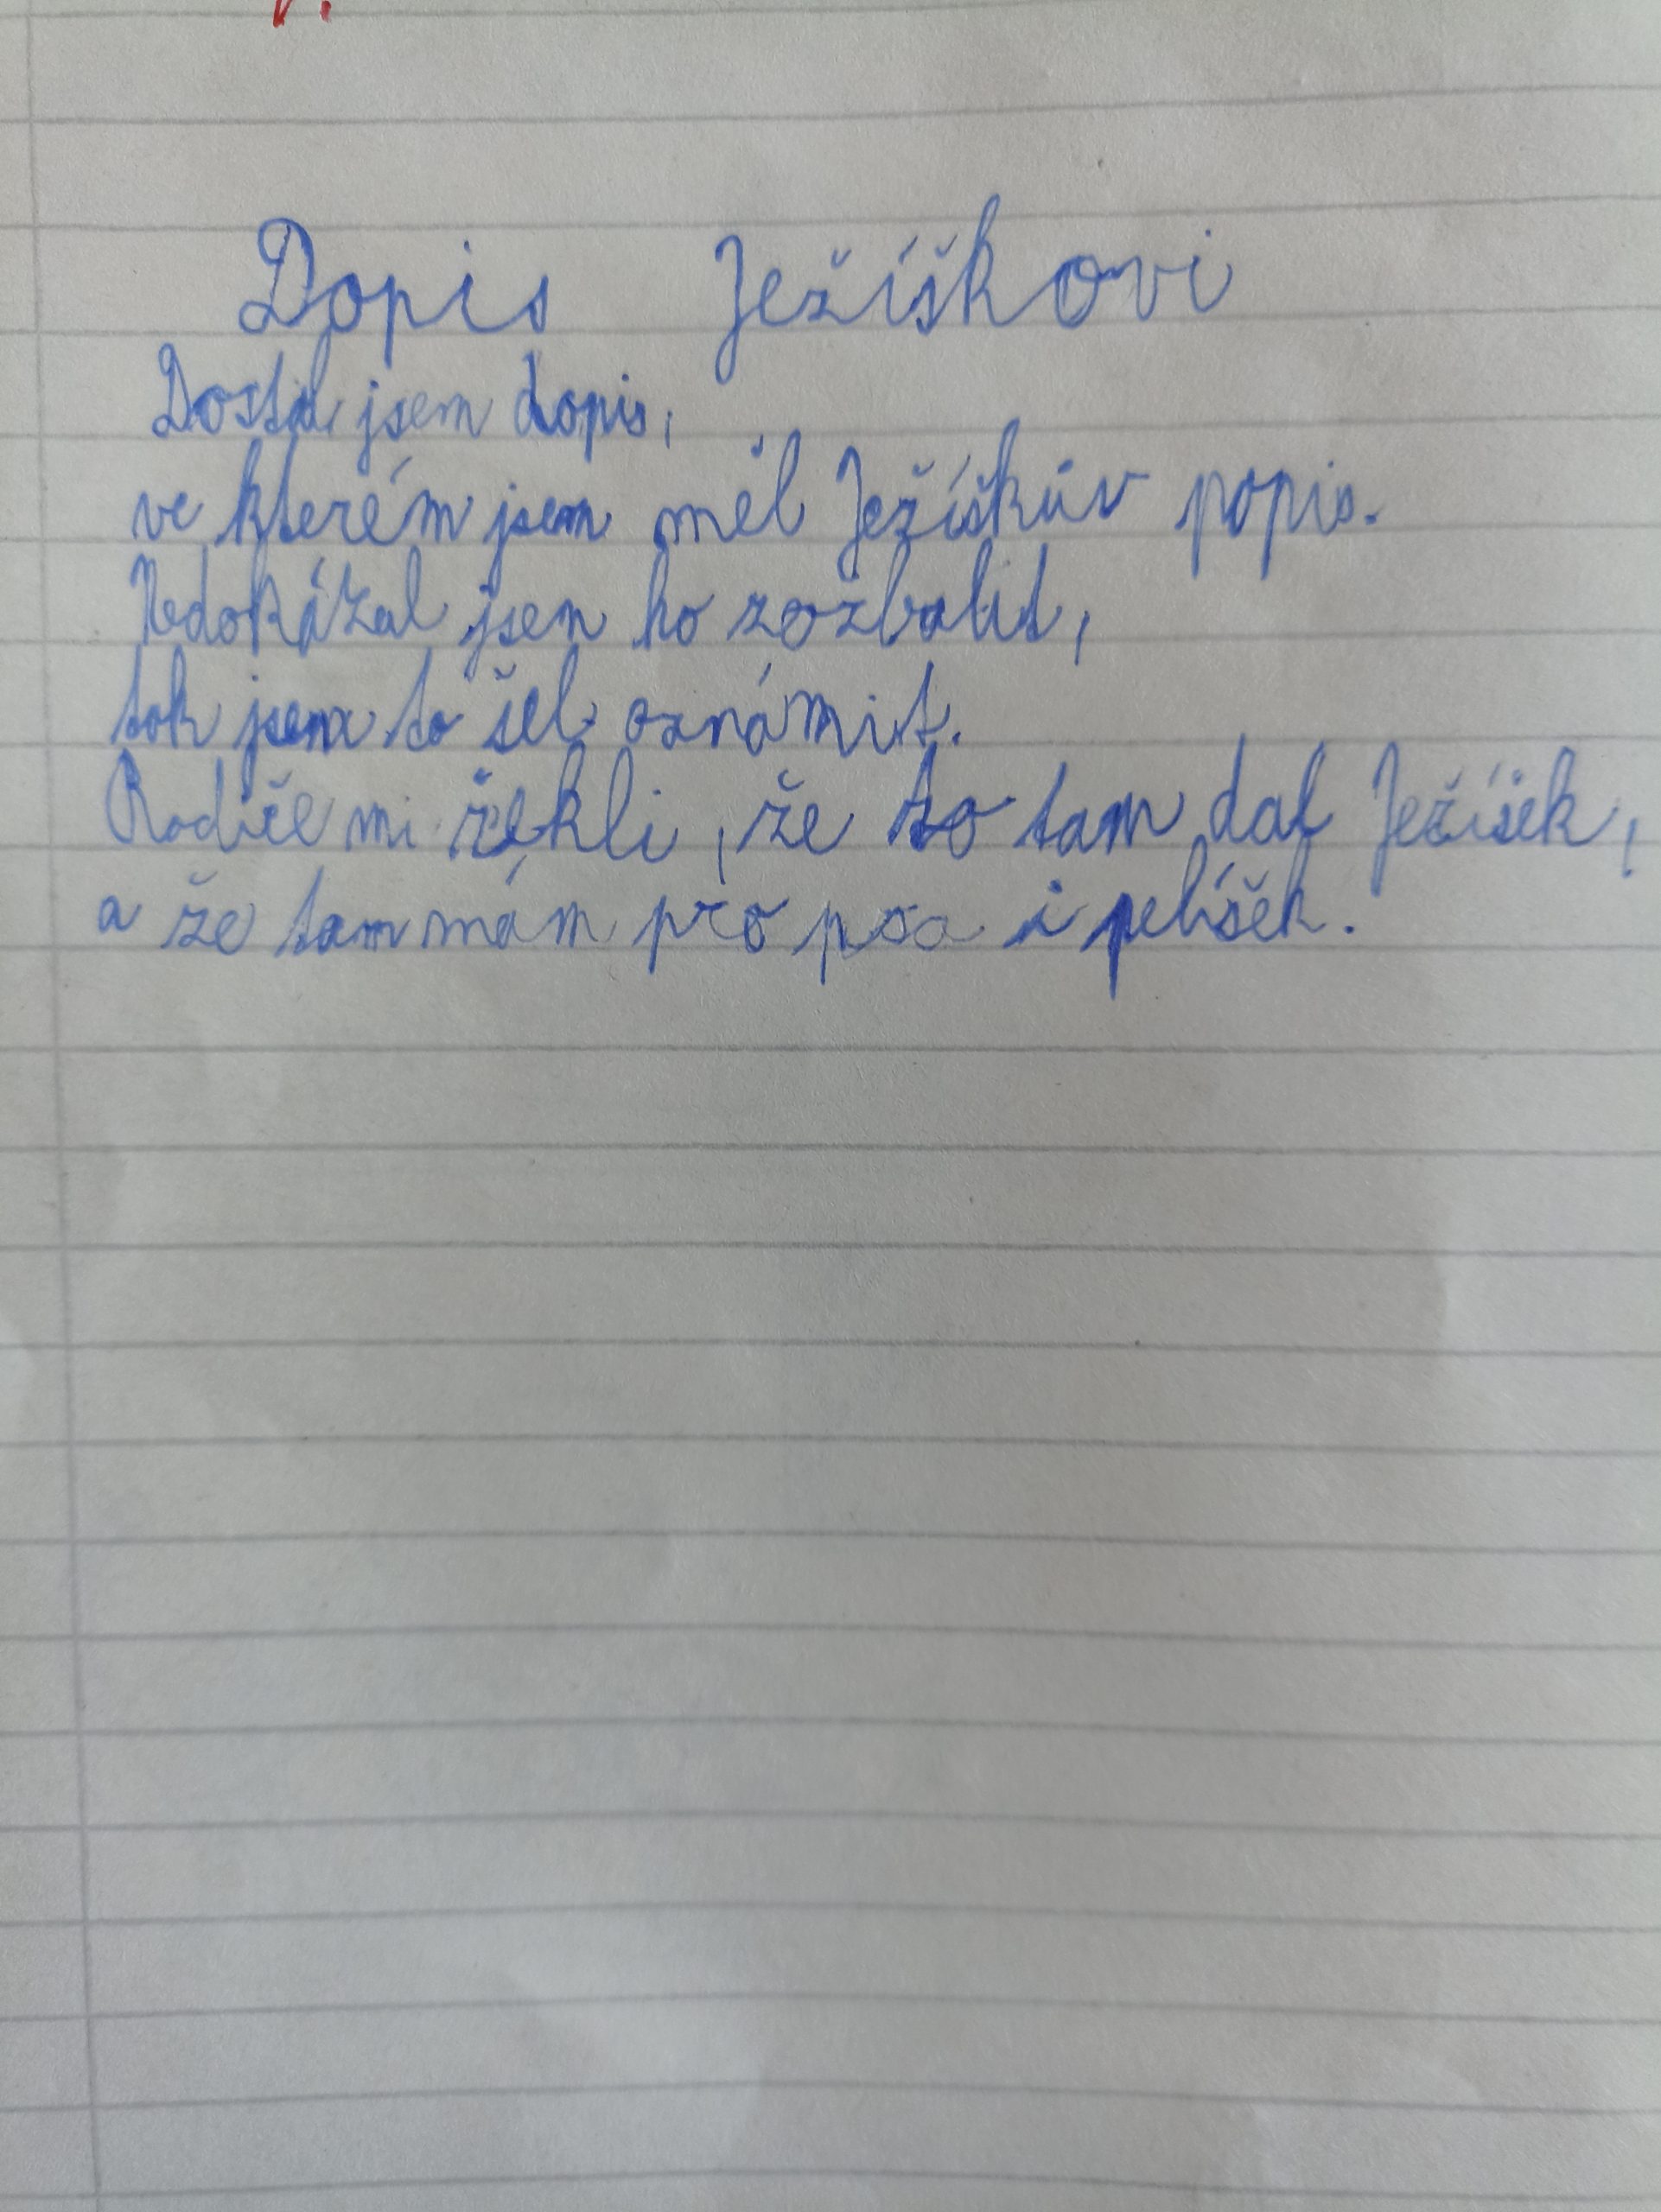 Dopis Ježíškovi
Dostal jsem dopis,
ve kterém jsem měl Ježíškův popis.
Nedokázal jsem ho rozbalit,
tak jsem to šel oznámit.
Rodiče mi řekli, že to tam dal Ježíšek,
a že tam mám pro psa i pelíšek.